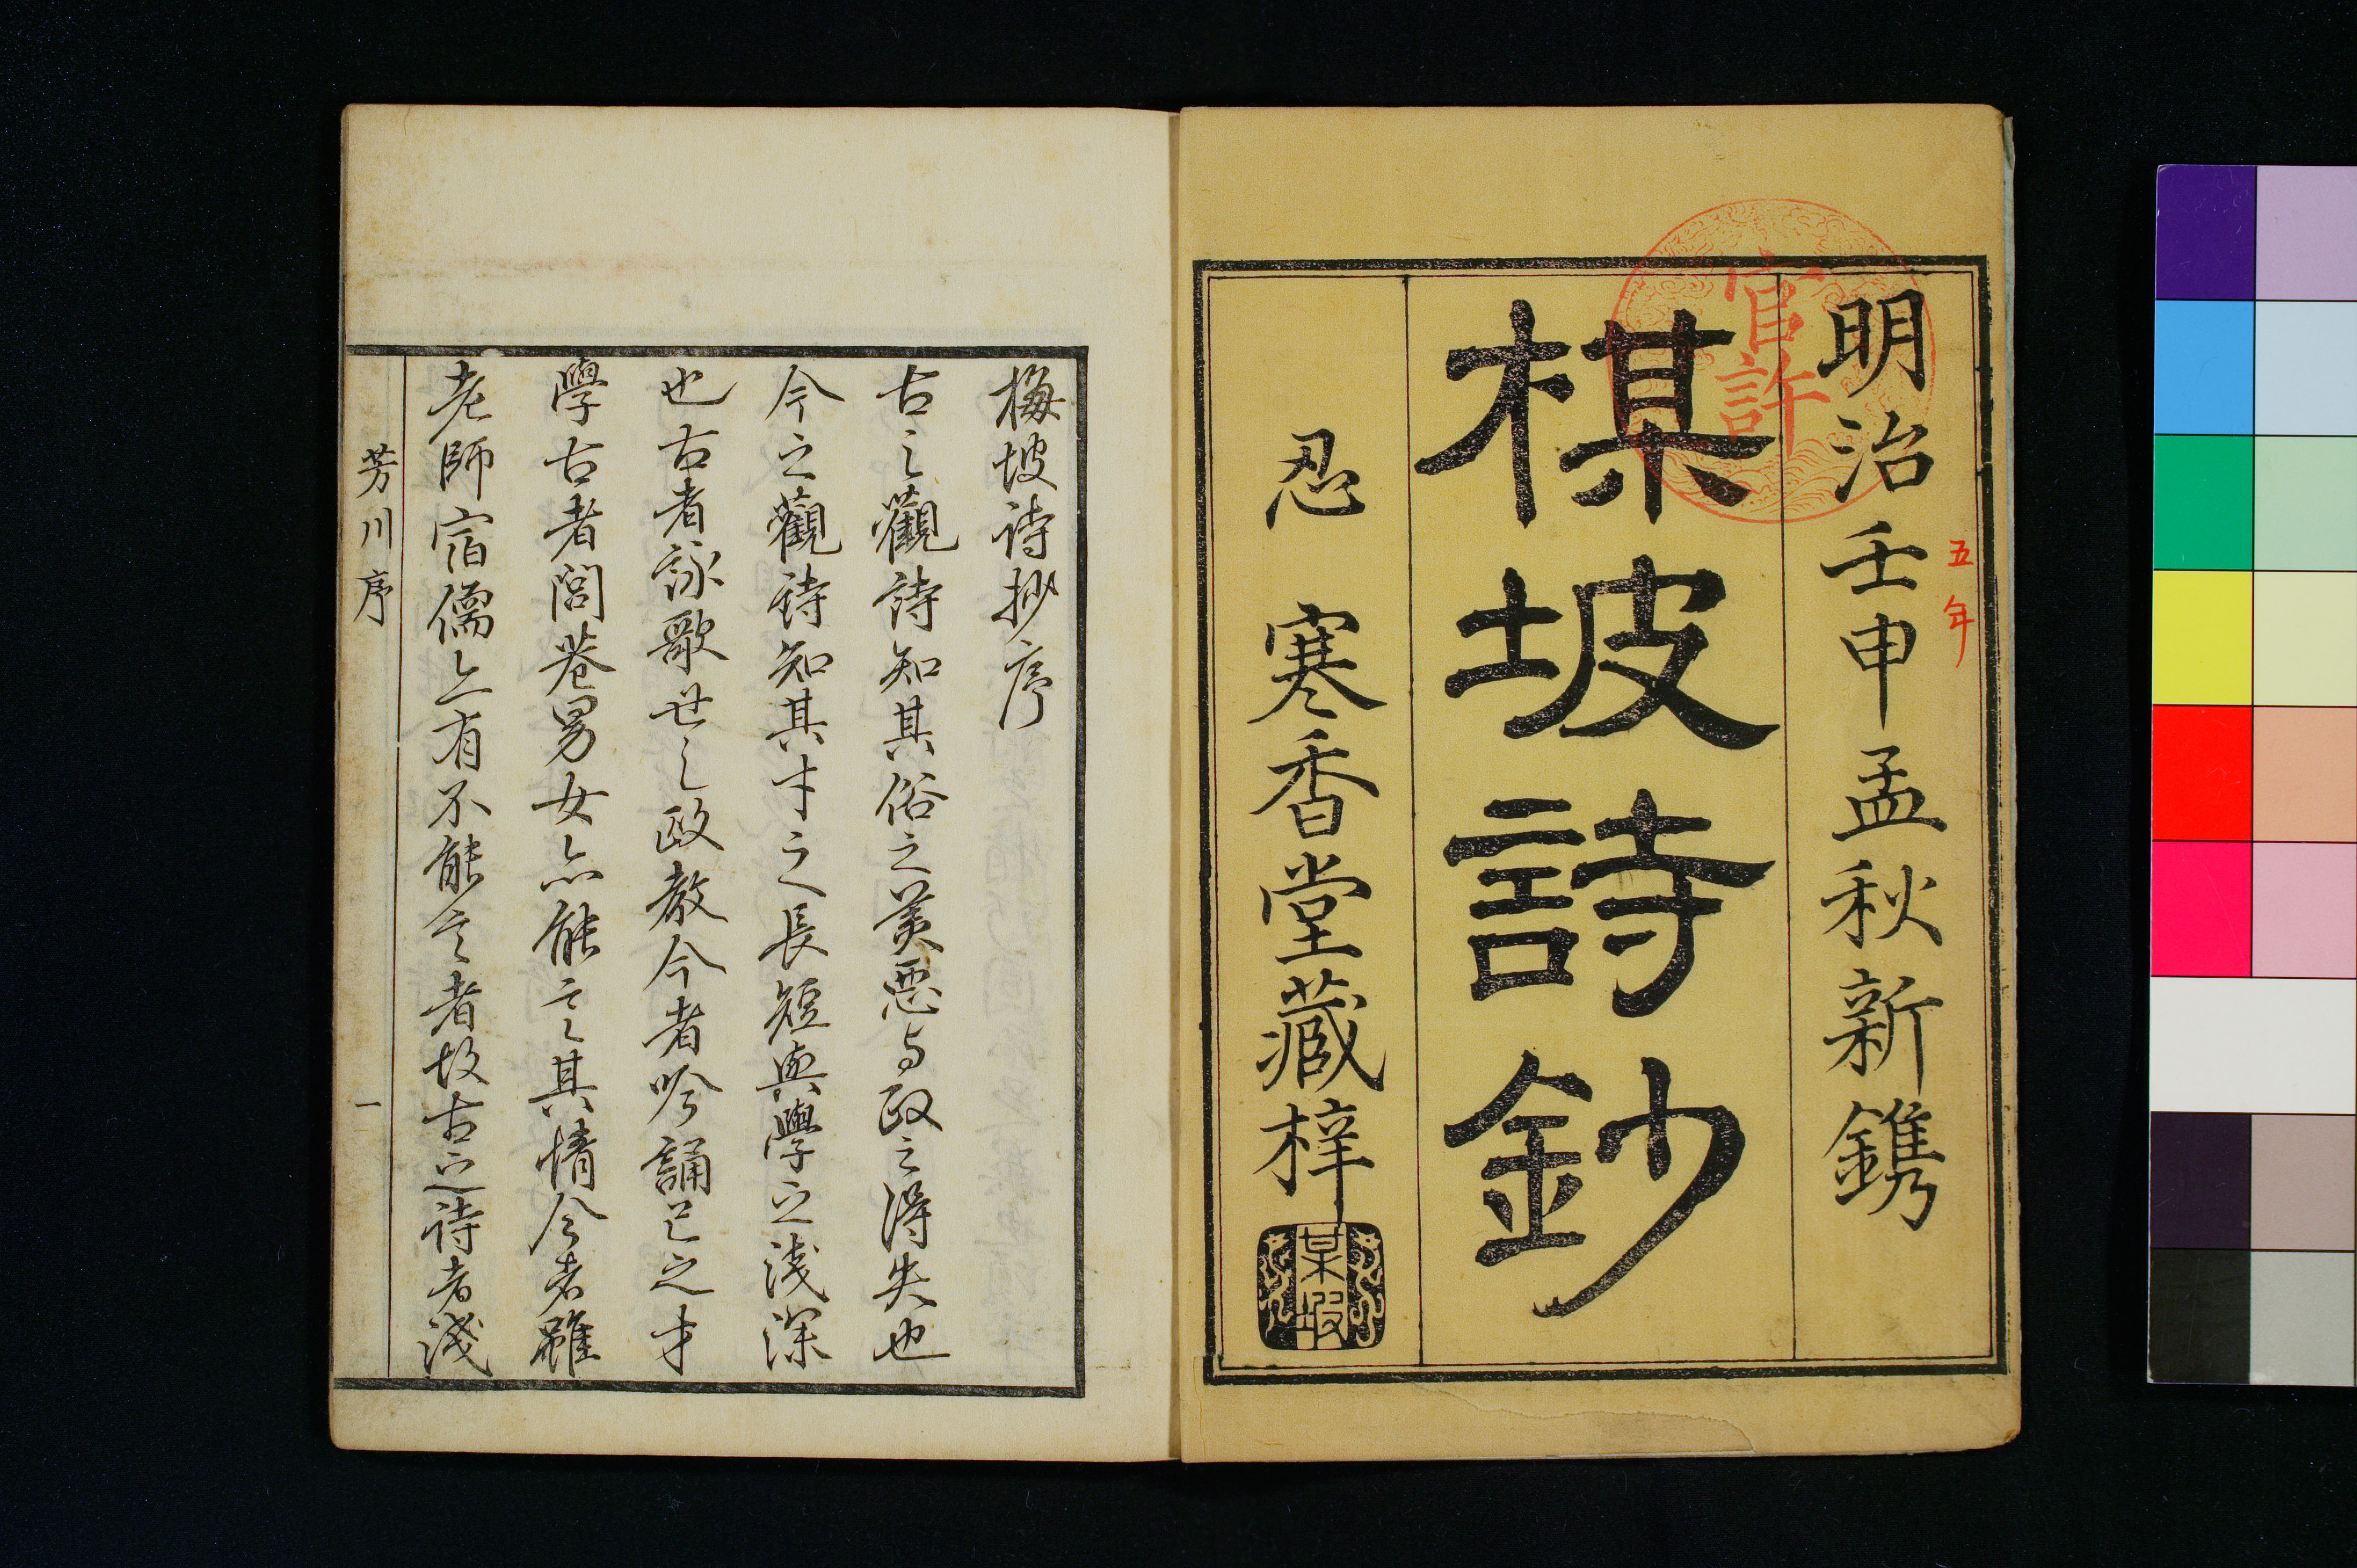 明治壬申孟秋新鐫
五年
官許
楳坡詩鈔
忍 寒香堂藏梓
某坡
梅坡詩抄序
古之觀詩知其俗之美惡与政之得失也
今之觀詩知其才之長短與學之淺深
也古者詠歌世之政教今者吟誦己之才
學古者閭巷男女亦能言其情今者雖
老師宿儒亦有不能言者故古之詩者淺
芳川序
一